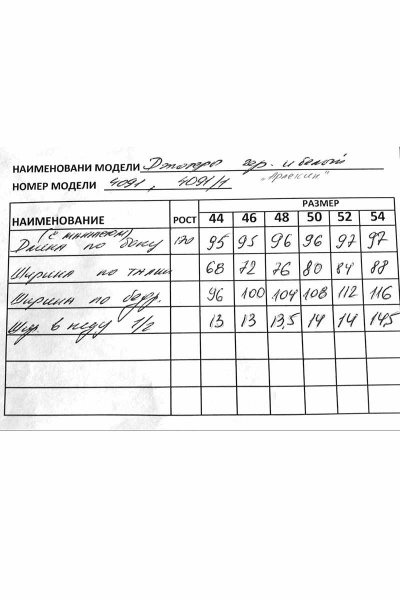 НАИМЕНОВАНИ МОДЕЛИ Джоггеры чер. и белый
"Арлекин"
НОМЕР МОДЕЛИ 4091, 4091/1
РАЗМЕР
НАИМЕНОВАНИЕ РОСТ 44 46 48 50 52 54
Длина по боку 170 95 95 96 96 97 97
Ширина по талии 68 72 76 80 84 88
Ширина по бедр. 96 100 104 108 112 116
Шир. в низу 1/2 13 13 13,5 14 14 14,5